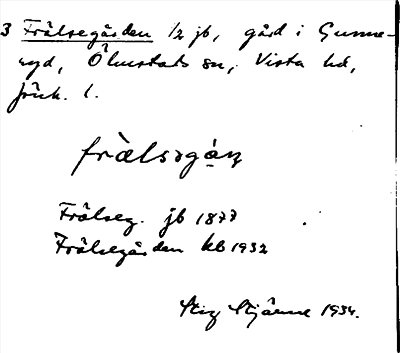 3 Frälsegården 1/2 jb, gård i Gunne-
ryd, Ölmstads sn, Vista hd,
Jönk. l.
frälsəgán
Frälseg. jb 1877
Frälsegården kb 1932
Stig Stjärne 1934.